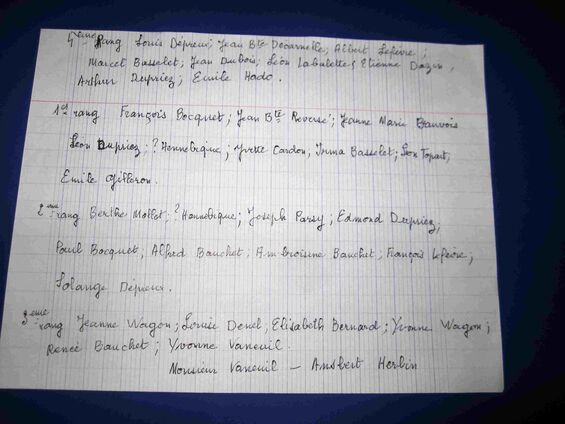 4eme Rang Louis Dépreux; Jean Bte Decarnelle, Albert Lefèvre;
Marcel Basselet; Jean Dubois; Léon Labalette; Etienne
Arthur Dupriez; Emile Hado.
1er rang François Bocquet; Jean Bte Reversé; Jeanne Marie Beauvois
Léon Dupriez; ? Hennebique; Yvette Cardon; Irma Basselet; Léon Topart;
Emile
2eme rang Berthe Mollet; ? Hennebique; Joseph Parsy; Edmond Dupriez;
Paul Bocquet; Alfred Bauchet; Ambroisine Bauchet; François Lefèvre;
Solange Dépreux.
3eme rang Jeanne Wagon; Louise Denel; Elisabeth Bernard; Yvonne Wagon;
Renée Bauchet; Yvonne Vaneuil.
Monsieur Vaneuil - Ansbert Herbin